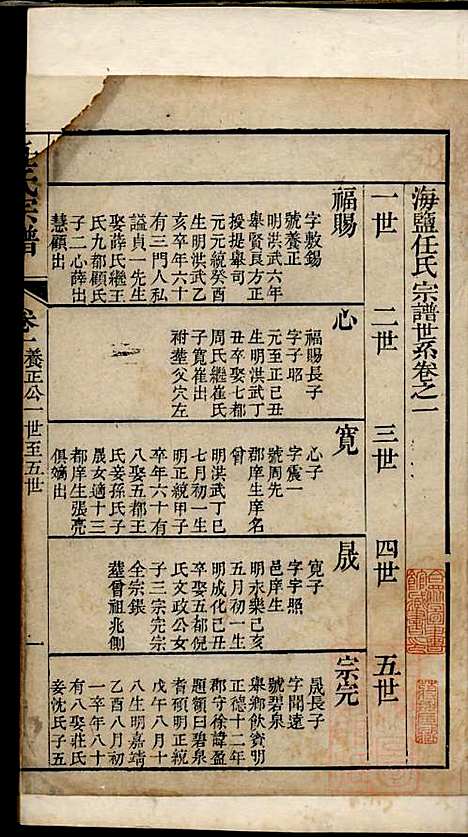 海鹽任氏宗譜世系卷之一
一世
二世
三世
四世
五世
福賜
字敷錫
號養正
明洪武六年
舉賢良方正
授提舉司
元元統癸酉
生明洪武乙
亥卒年六十
有三門人私
諡貞一先生
娶薛氏繼王
氏九都顧氏
子二心薛出
慧顧出
心
福賜長子
字子昭
元至正己丑
生明洪武丁
丑卒娶七都
周氏繼崔氏
子寬崔出
祔塟父穴左
寬
心子
字震一
號周先
郡庠生庠名
曾
明洪武丁巳
七月初一生
明正統甲子
卒年六十有
八娶五都王
氏妾孫氏子
晟女適十三
都庠生張亮
俱嫡出
晟
寬子
字宇照
邑庠生
明永樂己亥
五月初一生
明成化己丑
卒娶五都倪
氏文政公女
子三宗完宗
全宗銀
塟曾祖兆側
宗完
晟長子
字聞遠
號碧泉
舉鄉飲賓明
正德十二年
郡守徐諱盈
題額曰碧泉
耆碩明正統
戊午八月十
八生明嘉靖
乙酉八月初
一卒年八十
有八娶莊氏
妾沈氏子五
氏宗譜
卷一養正公一世至五世
一